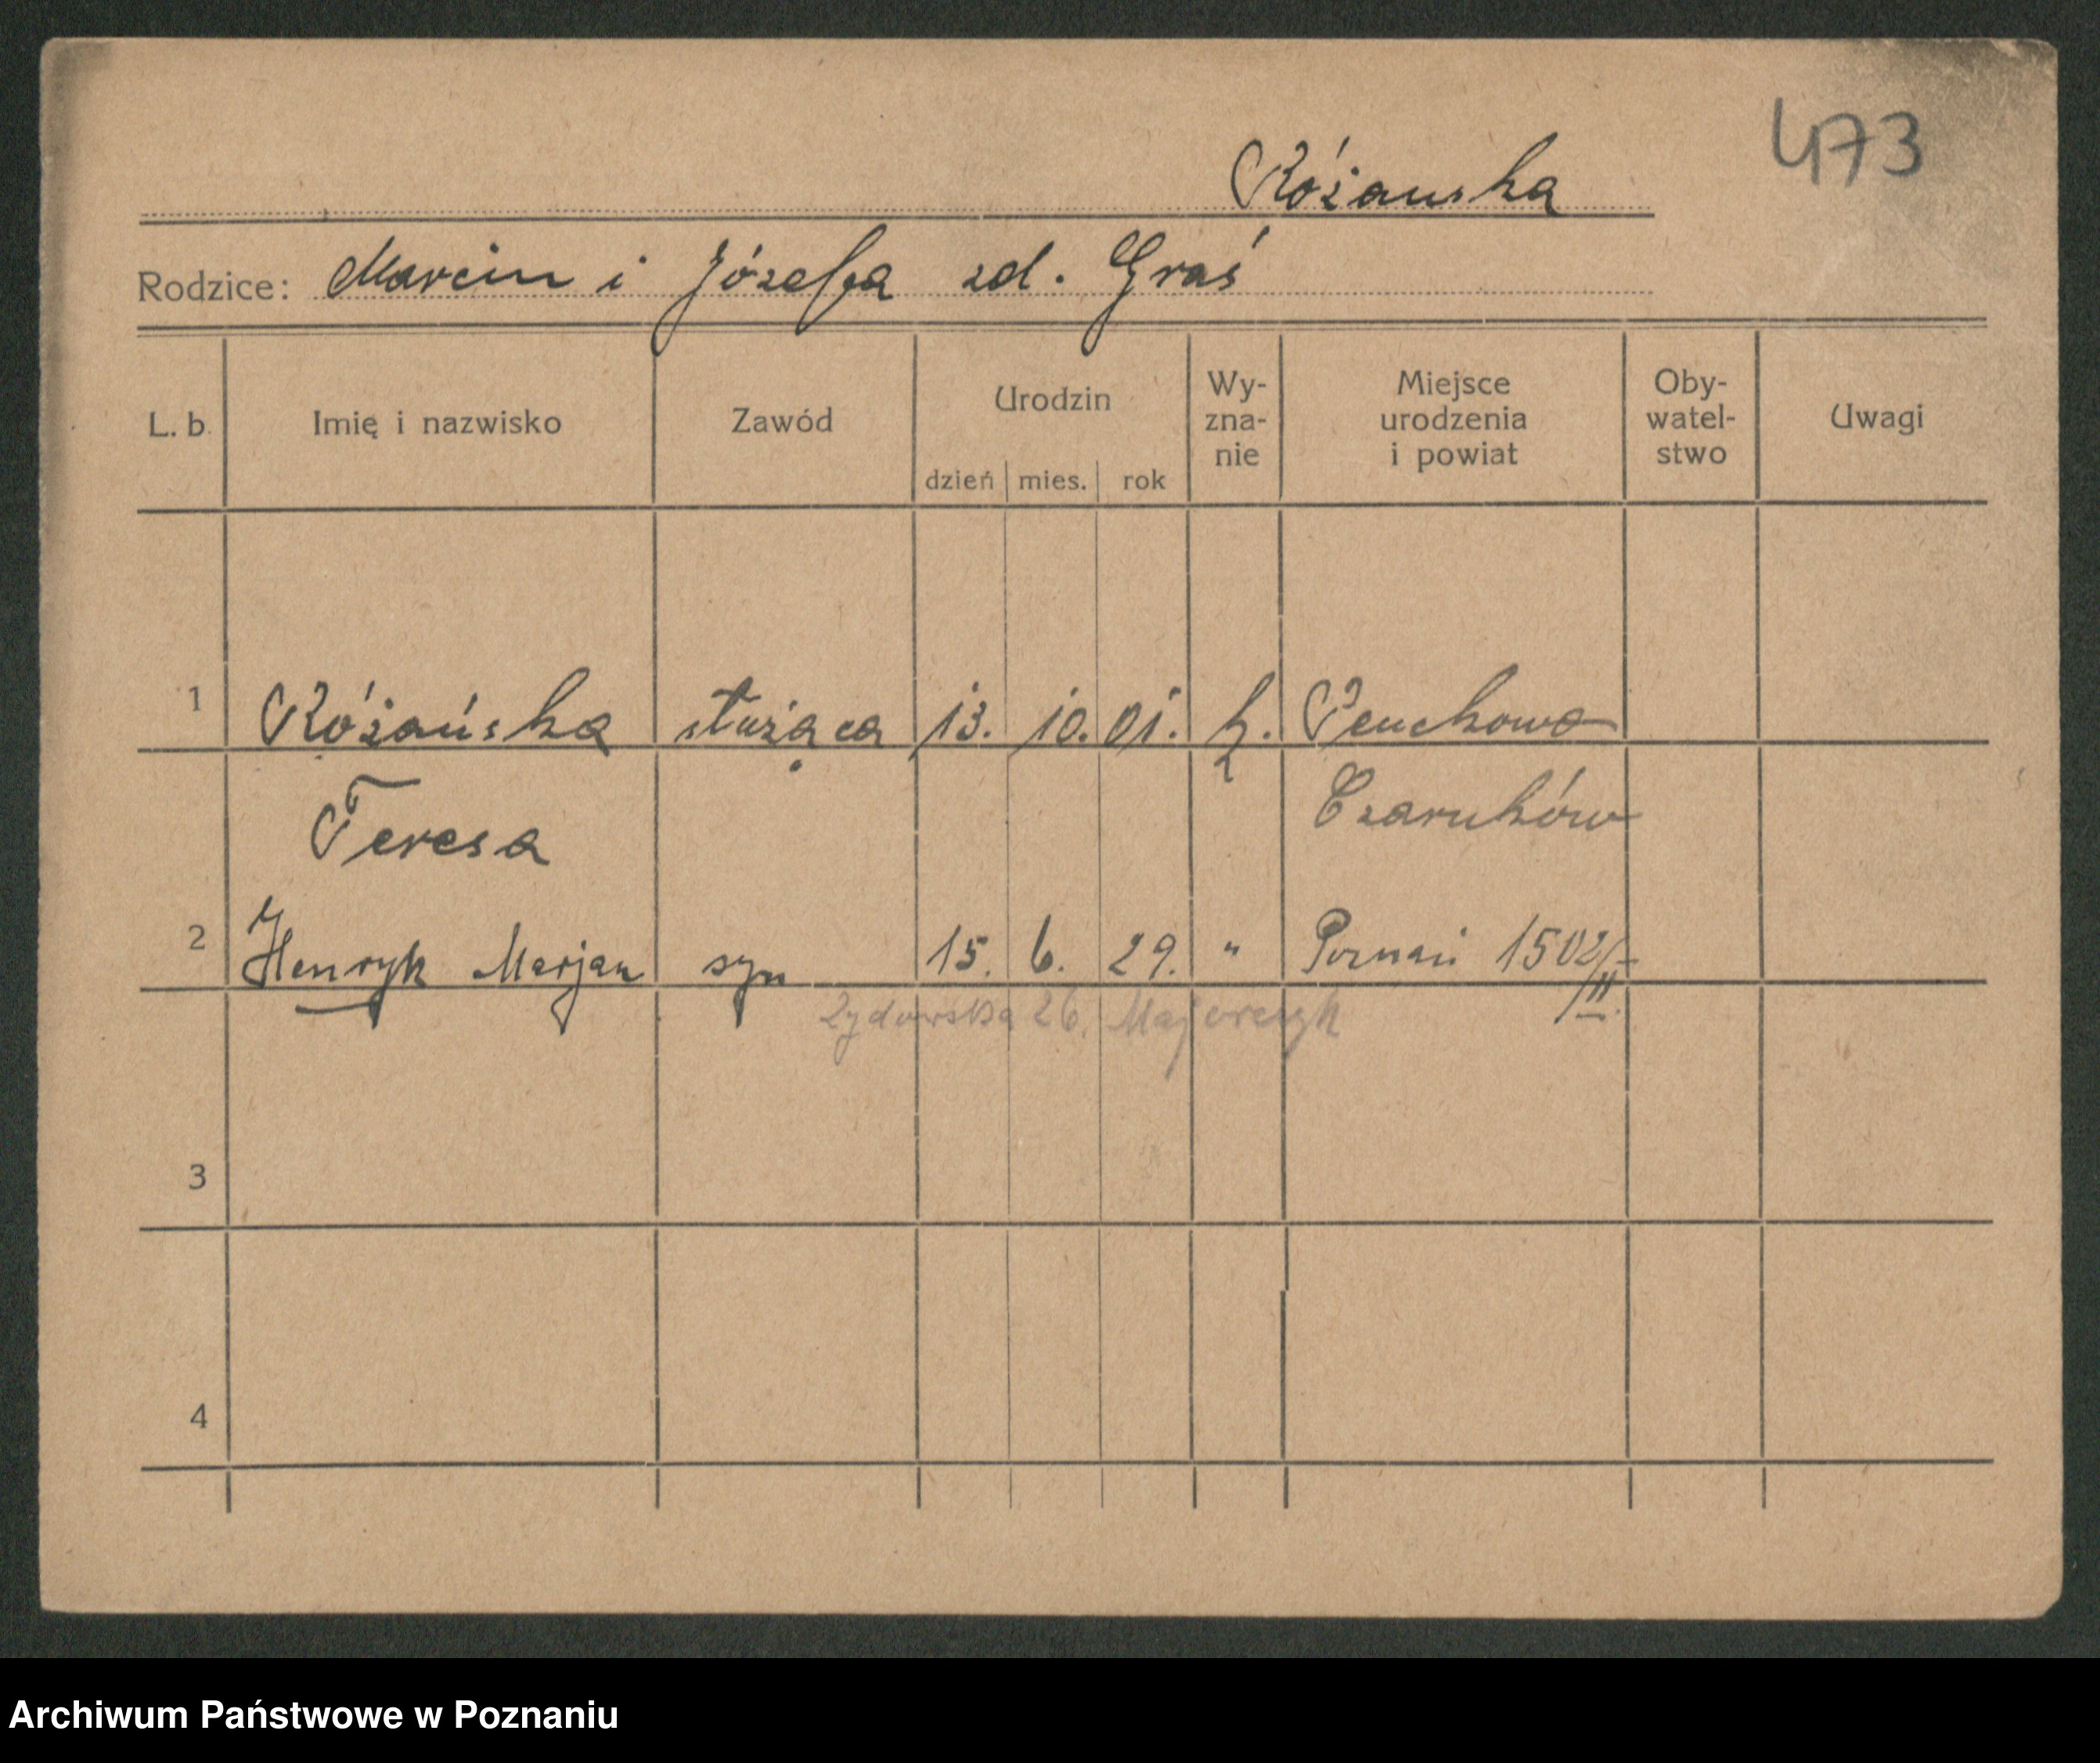 473
Różańska
Rodzice: Marcin i Józefa zd. Graś
L. b. Imię i nazwisko Zawód Urodzin dzień mies. rok Wy- zna- nie Miejsce urodzenia i powiat Oby- watel- stwo Uwagi
1 Różańska służąca 13. 10. 01. k.
Teresa Czarnków
2 Henryk Marjan syn 15. 6. 29. " Poznań 1502/II
Żydowska 26. Majorczyk
3
4
Archiwum Państwowe w Poznaniu